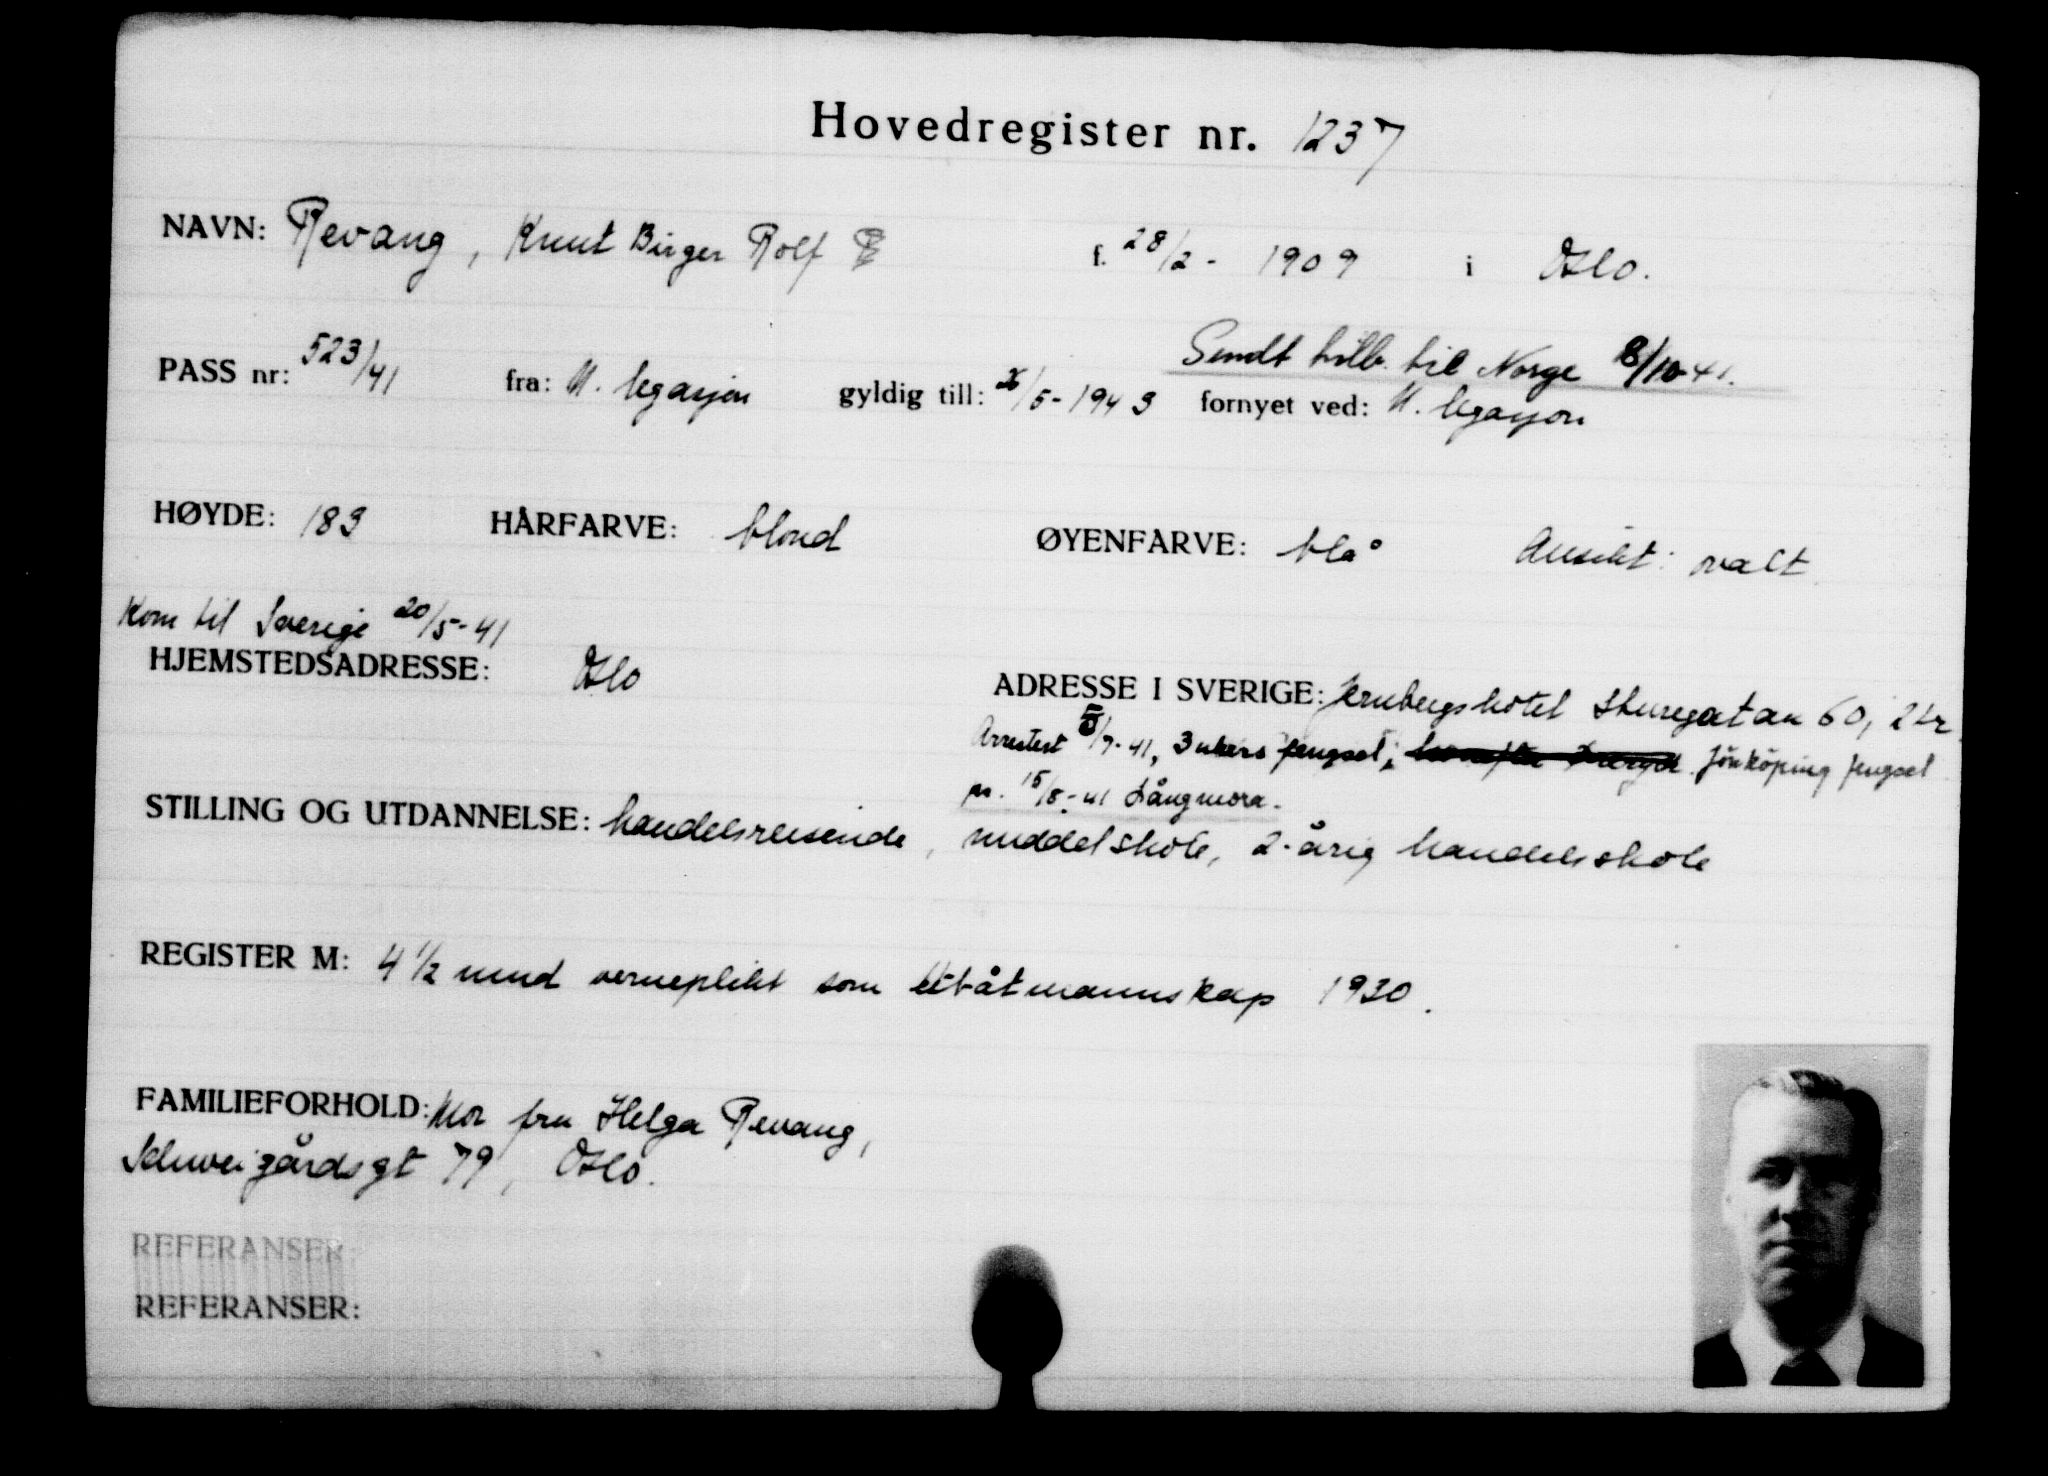 Hovedregister nr. 1237
NAVN: Revang, Knut Birger Rolf f. 28/2 - 1909 i Oslo.
Sendt tilb. til Norge 8/10-41.
PASS nr: 523/41 fra: N. legasjon gyldig till: /5-1943 fornyet ved: N. legasjon
HØYDE: 183 HÅRFARVE: blond ØYENFARVE: blå Ansikt: ovalt.
Kom til Sverige 20/5-41
HJEMSTEDSADRESSE: Oslo ADRESSE I SVERIGE: Jernbergs hotel Sturegatan 60, 2 tr.
Arrestert /7-41, 3 ukers fengsel, Jönköping fengsel
pr. 15/8-41 Långmora.
STILLING OG UTDANNELSE: handelsreisende, middelskole, 2-årig handelsskole
REGISTER M: 4 1/2 mnd verneplikt som båtmannskap 1930.
FAMILIEFORHOLD: Mor fru Helga Revang,
Schweigårdsgt 79, Oslo.
REFERANSER:
REFERANSER: